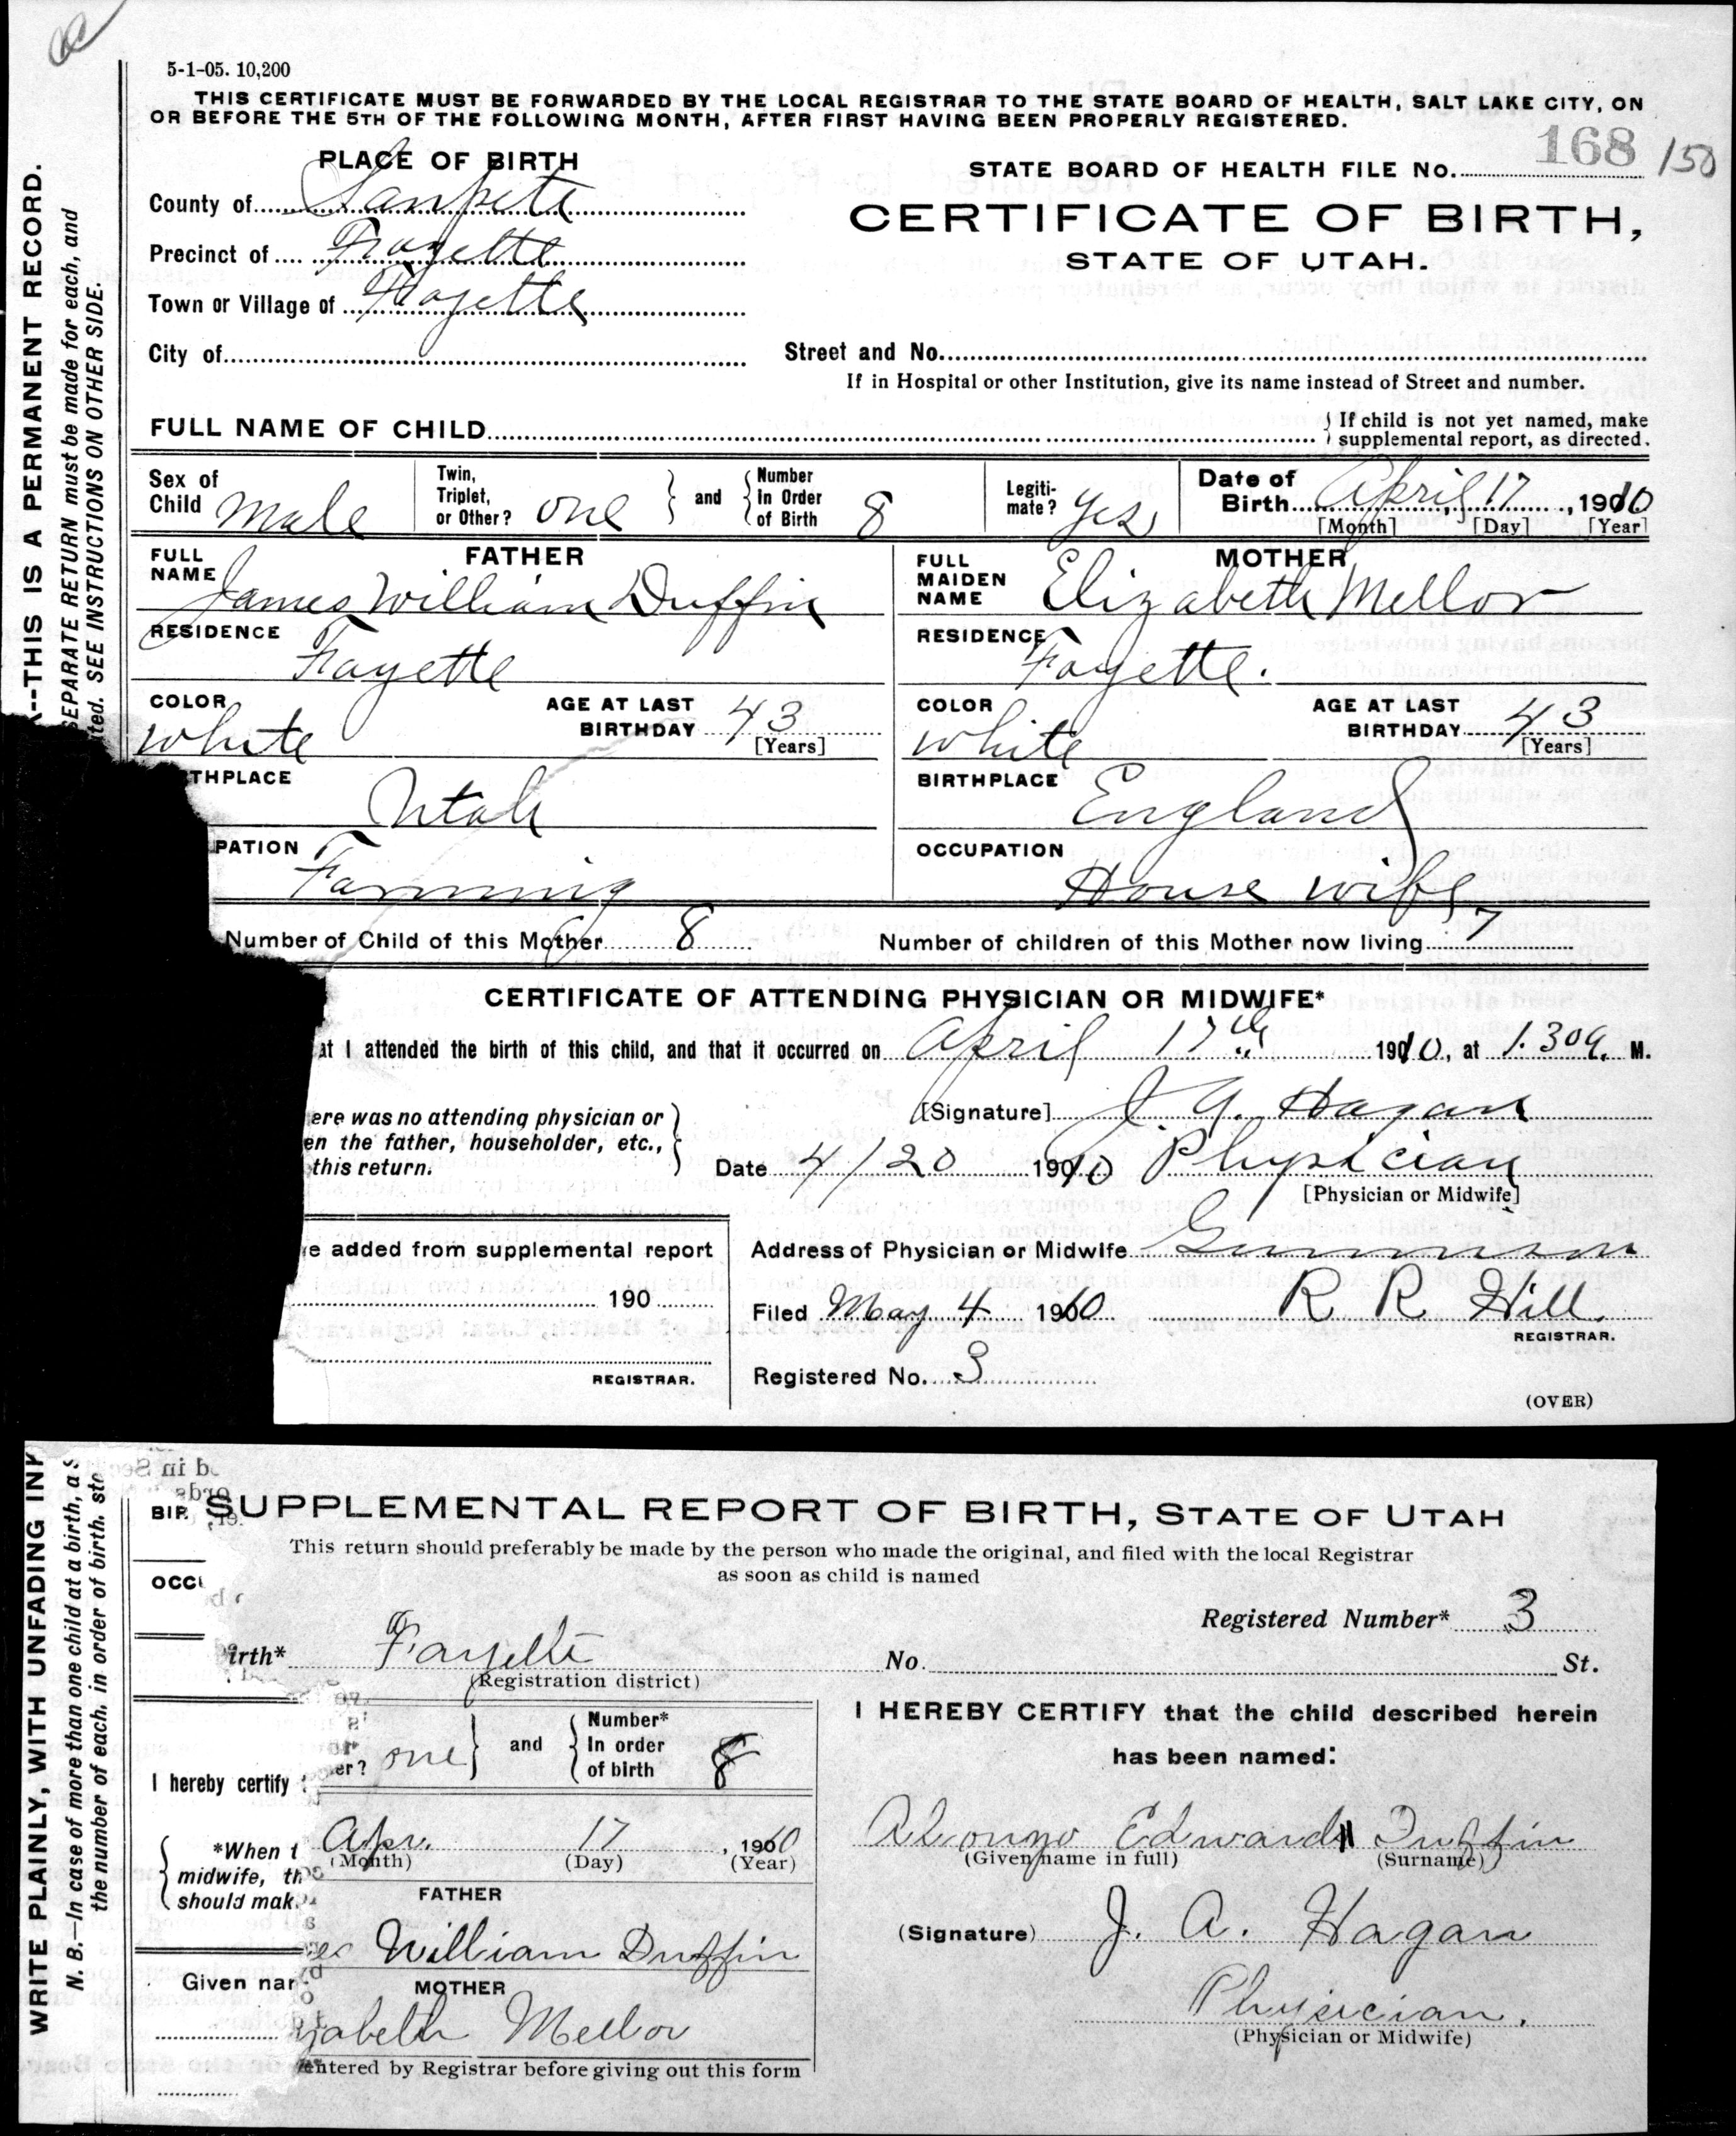 5-1-05. 10,200
THIS CERTIFICATE MUST BE FORWARDED BY THE LOCAL REGISTRAR TO THE STATE BOARD OF HEALTH, SALT LAKE CITY, ON
OR BEFORE THE 5TH OF THE FOLLOWING MONTH, AFTER FIRST HAVING BEEN PROPERLY REGISTERED.
K--THIS IS A PERMANENT RECORD.
SEPARATE RETURN must be made for each, and
ted. SEE INSTRUCTIONS ON OTHER SIDE.
PLACE OF BIRTH
County of Sanpete
Precinct of Fayette
Town or Village of Fayette
City of
STATE BOARD OF HEALTH FILE No. 168 150
CERTIFICATE OF BIRTH,
STATE OF UTAH.
Street and No.
If in Hospital or other Institution, give its name instead of Street and number.
FULL NAME OF CHILD
If child is not yet named, make
supplemental report, as directed.
Sex of Child Male
Twin, Triplet, or Other? one and Number In Order of Birth 8
Legiti-mate? Yes
Date of Birth April 17, 1910
[Month] [Day] [Year]
FATHER
FULL NAME James William Duffin
RESIDENCE
Fayette
COLOR white AGE AT LAST BIRTHDAY 43 [Years]
THPLACE Utah
PATION Farming
MOTHER
FULL MAIDEN NAME Elizabeth Mellor
RESIDENCE
Fayette.
COLOR white AGE AT LAST BIRTHDAY 43 [Years]
BIRTHPLACE England
OCCUPATION House wife
Number of Child of this Mother 8 Number of children of this Mother now living 7
CERTIFICATE OF ATTENDING PHYSICIAN OR MIDWIFE*
at I attended the birth of this child, and that it occurred on April 17th 1910, at 1.30 a. M.
ere was no attending physician or
en the father, householder, etc.,
this return.
[Signature] J. A. Hagan
Date 4/20 1910 Physician
[Physician or Midwife]
e added from supplemental report
190
REGISTRAR.
Address of Physician or Midwife Gunnison
Filed May 4 1910 R R Hill.
REGISTRAR.
Registered No. 3
(OVER)
WRITE PLAINLY, WITH UNFADING INK
N. B.—In case of more than one child at a birth, a S
the number of each, in order of birth, sta
BIR
OCCU
I hereby certify
*When t
midwife, th
should mak
Given nar
SUPPLEMENTAL REPORT OF BIRTH, STATE OF UTAH
This return should preferably be made by the person who made the original, and filed with the local Registrar
as soon as child is named
Registered Number* 3
irth* Fayette No. St.
(Registration district)
er? one and Number* In order of birth 8
Apr. 17, 1910
(Month) (Day) (Year)
FATHER
es William Duffin
MOTHER
zabeth Mellor
entered by Registrar before giving out this form
I HEREBY CERTIFY that the child described herein
has been named:
Alonzo Edward Duffin
(Given name in full) (Surname)
(Signature) J. A. Hagan
Physician.
(Physician or Midwife)